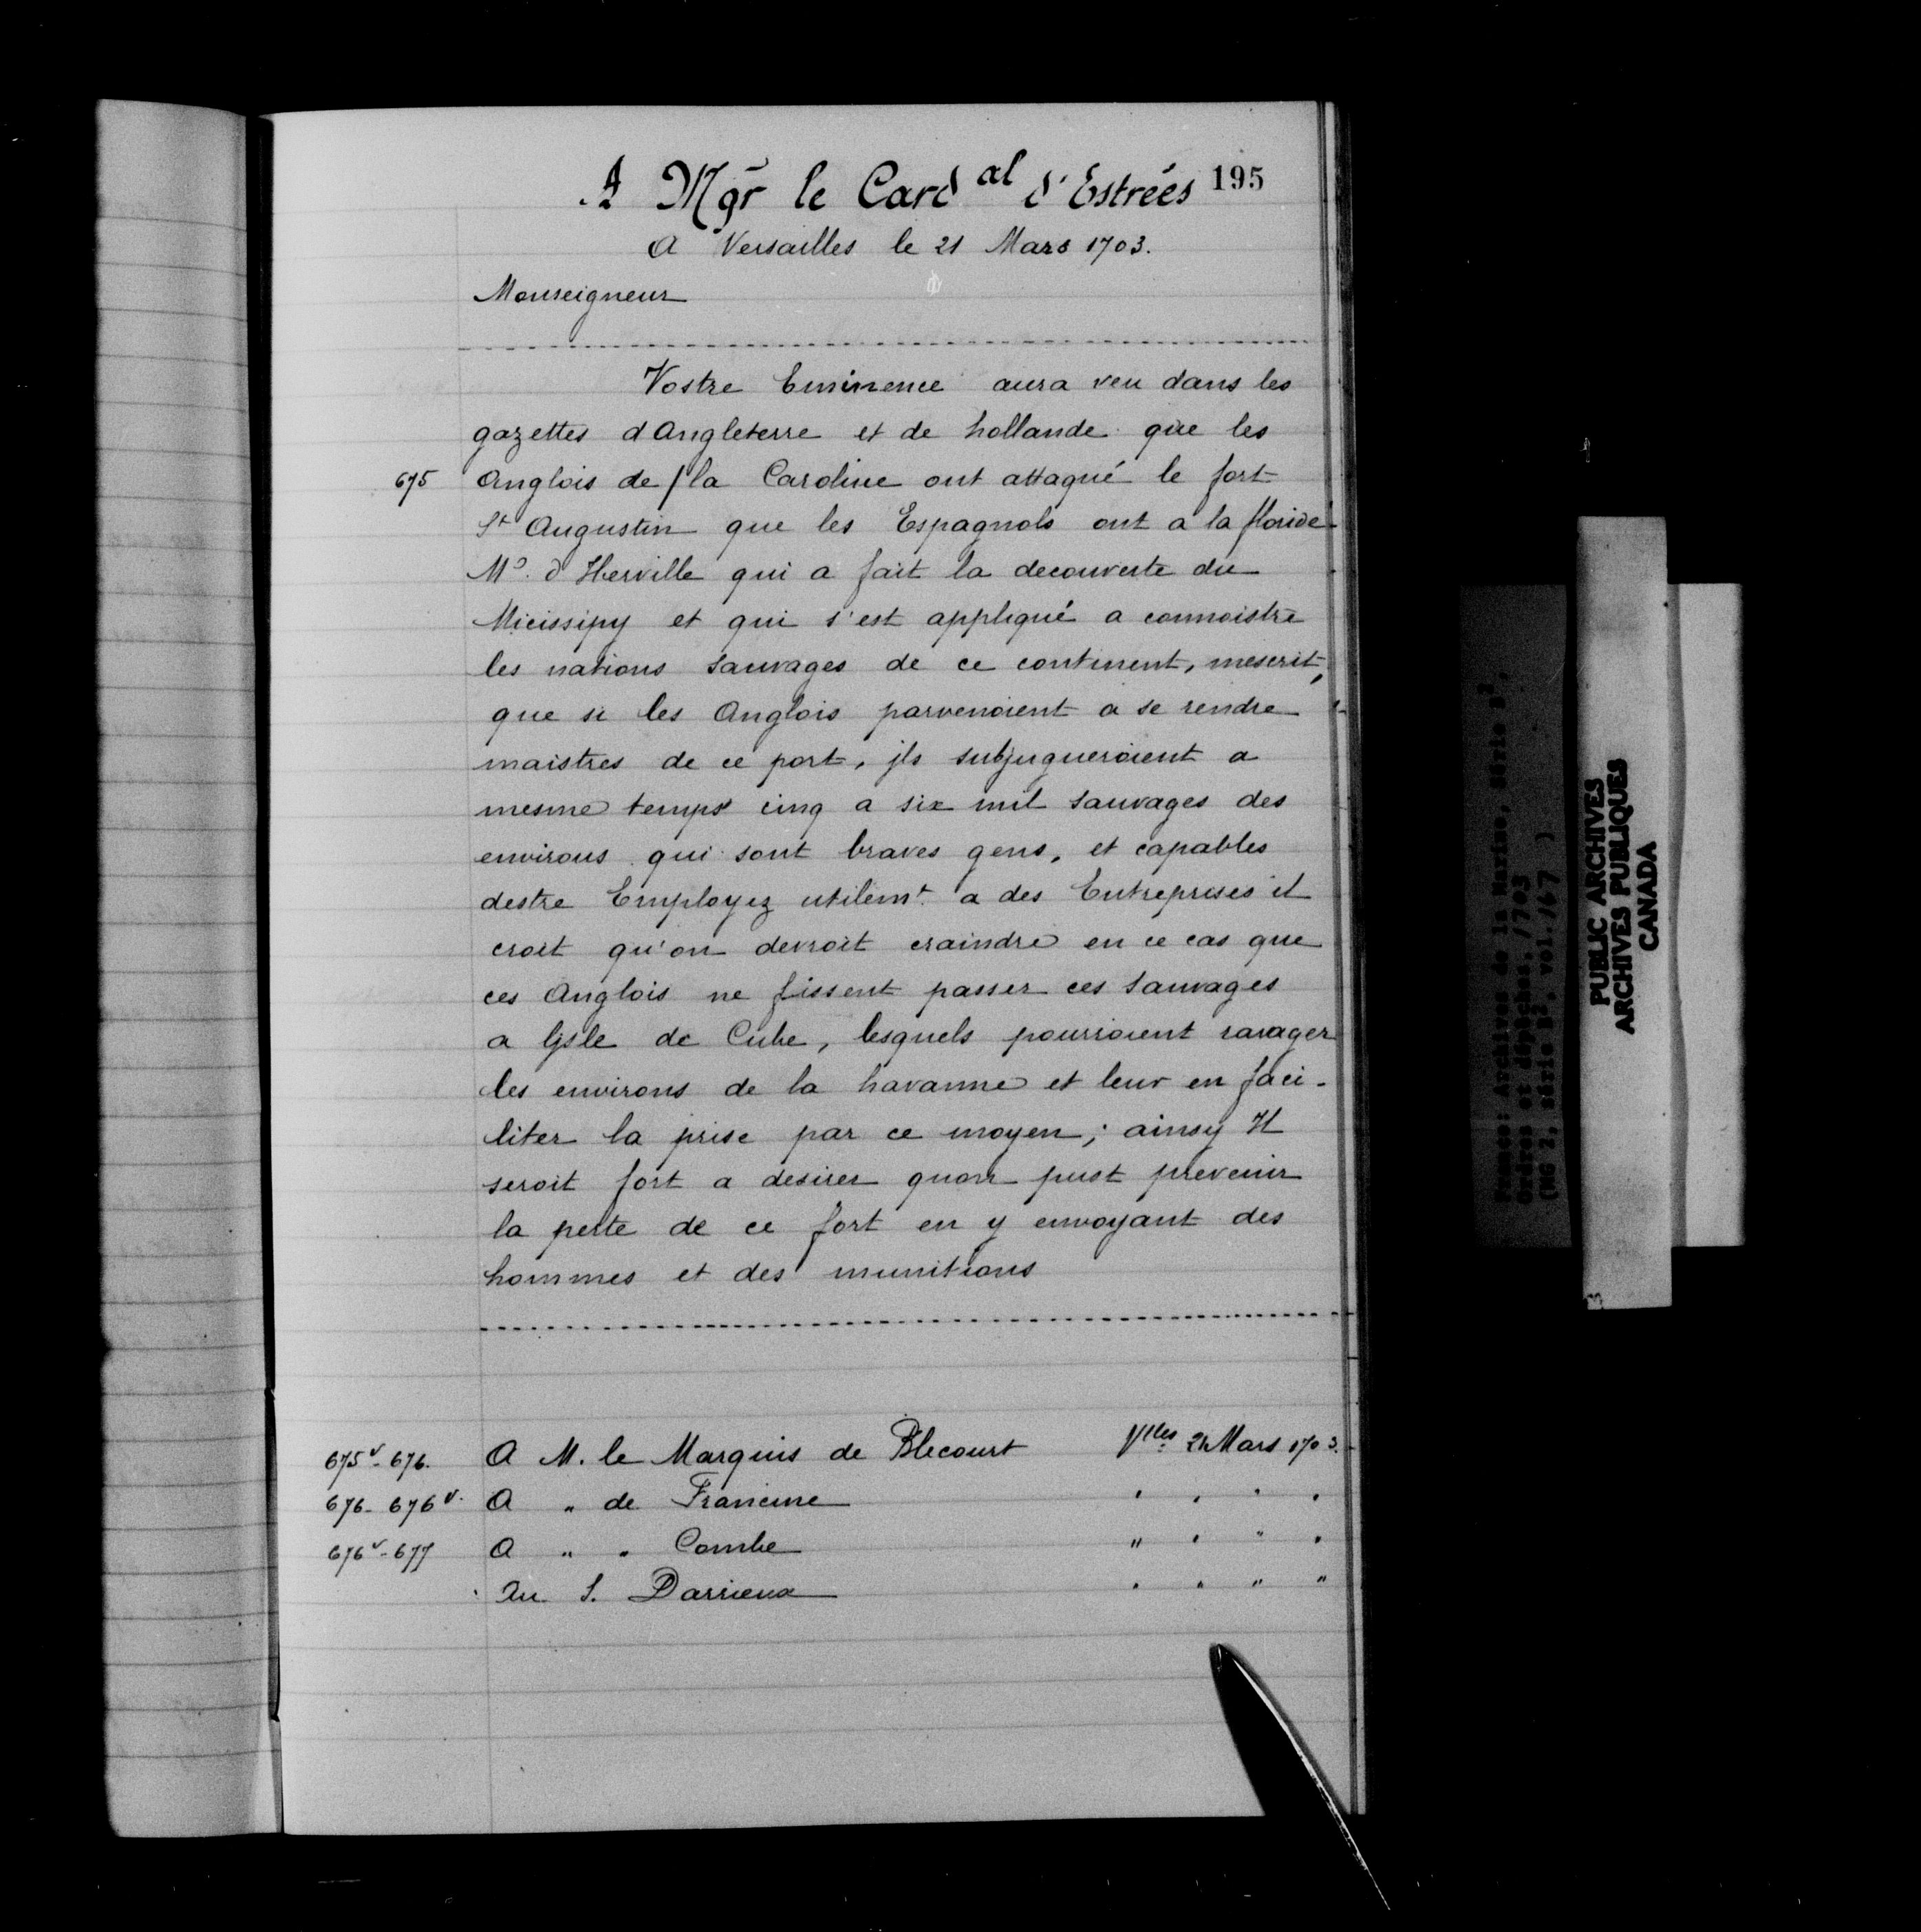 A Mgr le Card al d'Estrées 195
A Versailles le 21 Mars 1703.
Monseigneur
Vostre Eminence aura veu dans les
gazettes dAngleterre et de hollande que les
675 Anglois de / la Caroline ont attaqué le fort
St Augustin que les Espagnols ont a la floride
Mr. d'Iberville qui a fait la decouverte du
Micissipy et qui s'est appliqué a connoistre
les nations sauvages de ce continent, mescrit,
que si les Anglois parvenoient a se rendre
maistres de ce port, jls subjugueroient a
mesme temps cinq a six mil sauvages des
environs qui sont braves gens, et capables
destre Employez utilemt. a des Entreprises il
croit qu'on devroit craindre en ce cas que
ces Anglois ne fissent passer ces sauvages
a ljsle de Cube, lesquels pourroient ravager
les environs de la havanne et leur en faci-
liter la prise par ce moyen; ainsy Il
seroit fort a desirer quon pust prevenir
la perte de ce fort en y envoyant des
hommes et des munitions
675v-676. A M. le Marquis de Blecourt Vlles 21 Mars 1703.
676-676v. A " de Francine " " " "
676v-677 A " " Combe " " " "
Au S. Darrieux " " " "
France: Archives de la Marine, Série B2,
Ordres et dépêches, 1703
(MG 2, série B2, vol. 167 )
PUBLIC ARCHIVES
ARCHIVES PUBLIQUES
CANADA